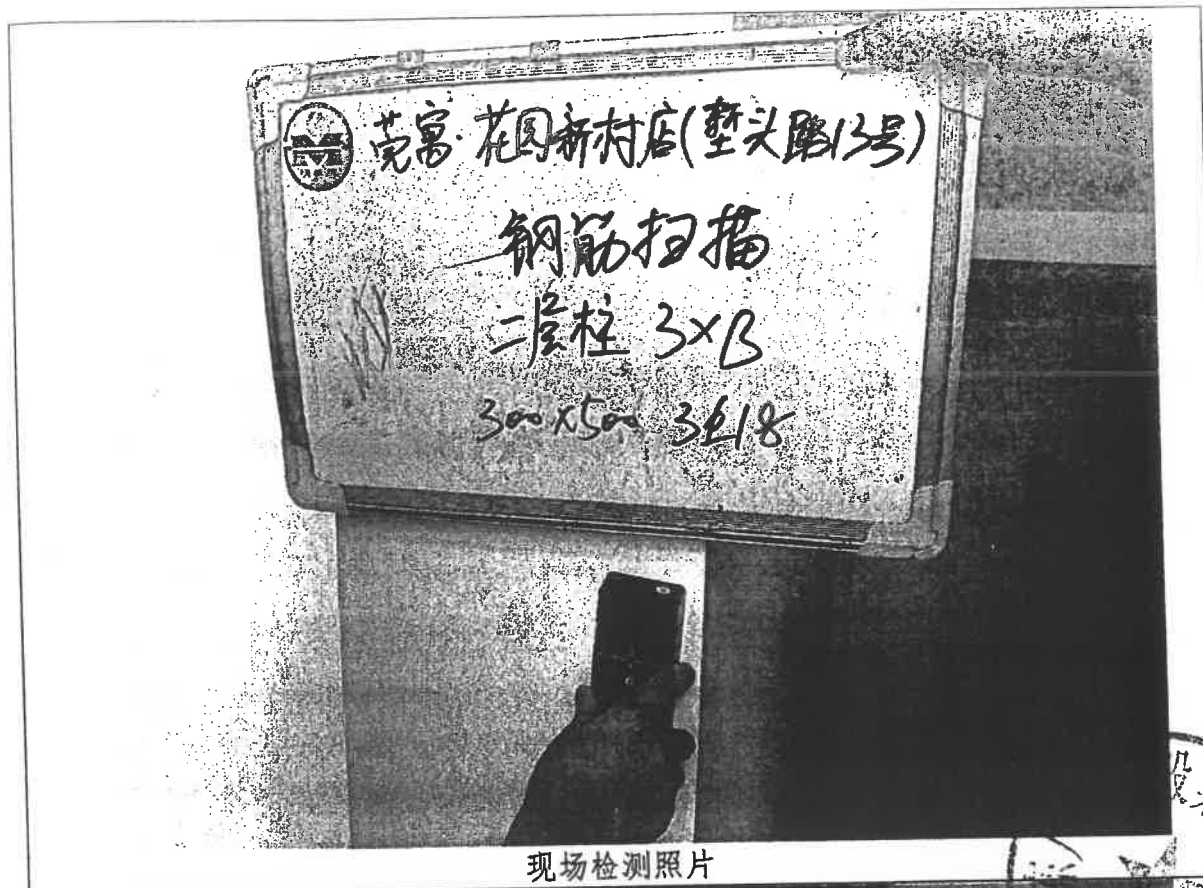 莞寓·花园新村店(堑头路13号)
钢筋扫描
二层柱 3×B
300×500 3⏀18
现场检测照片